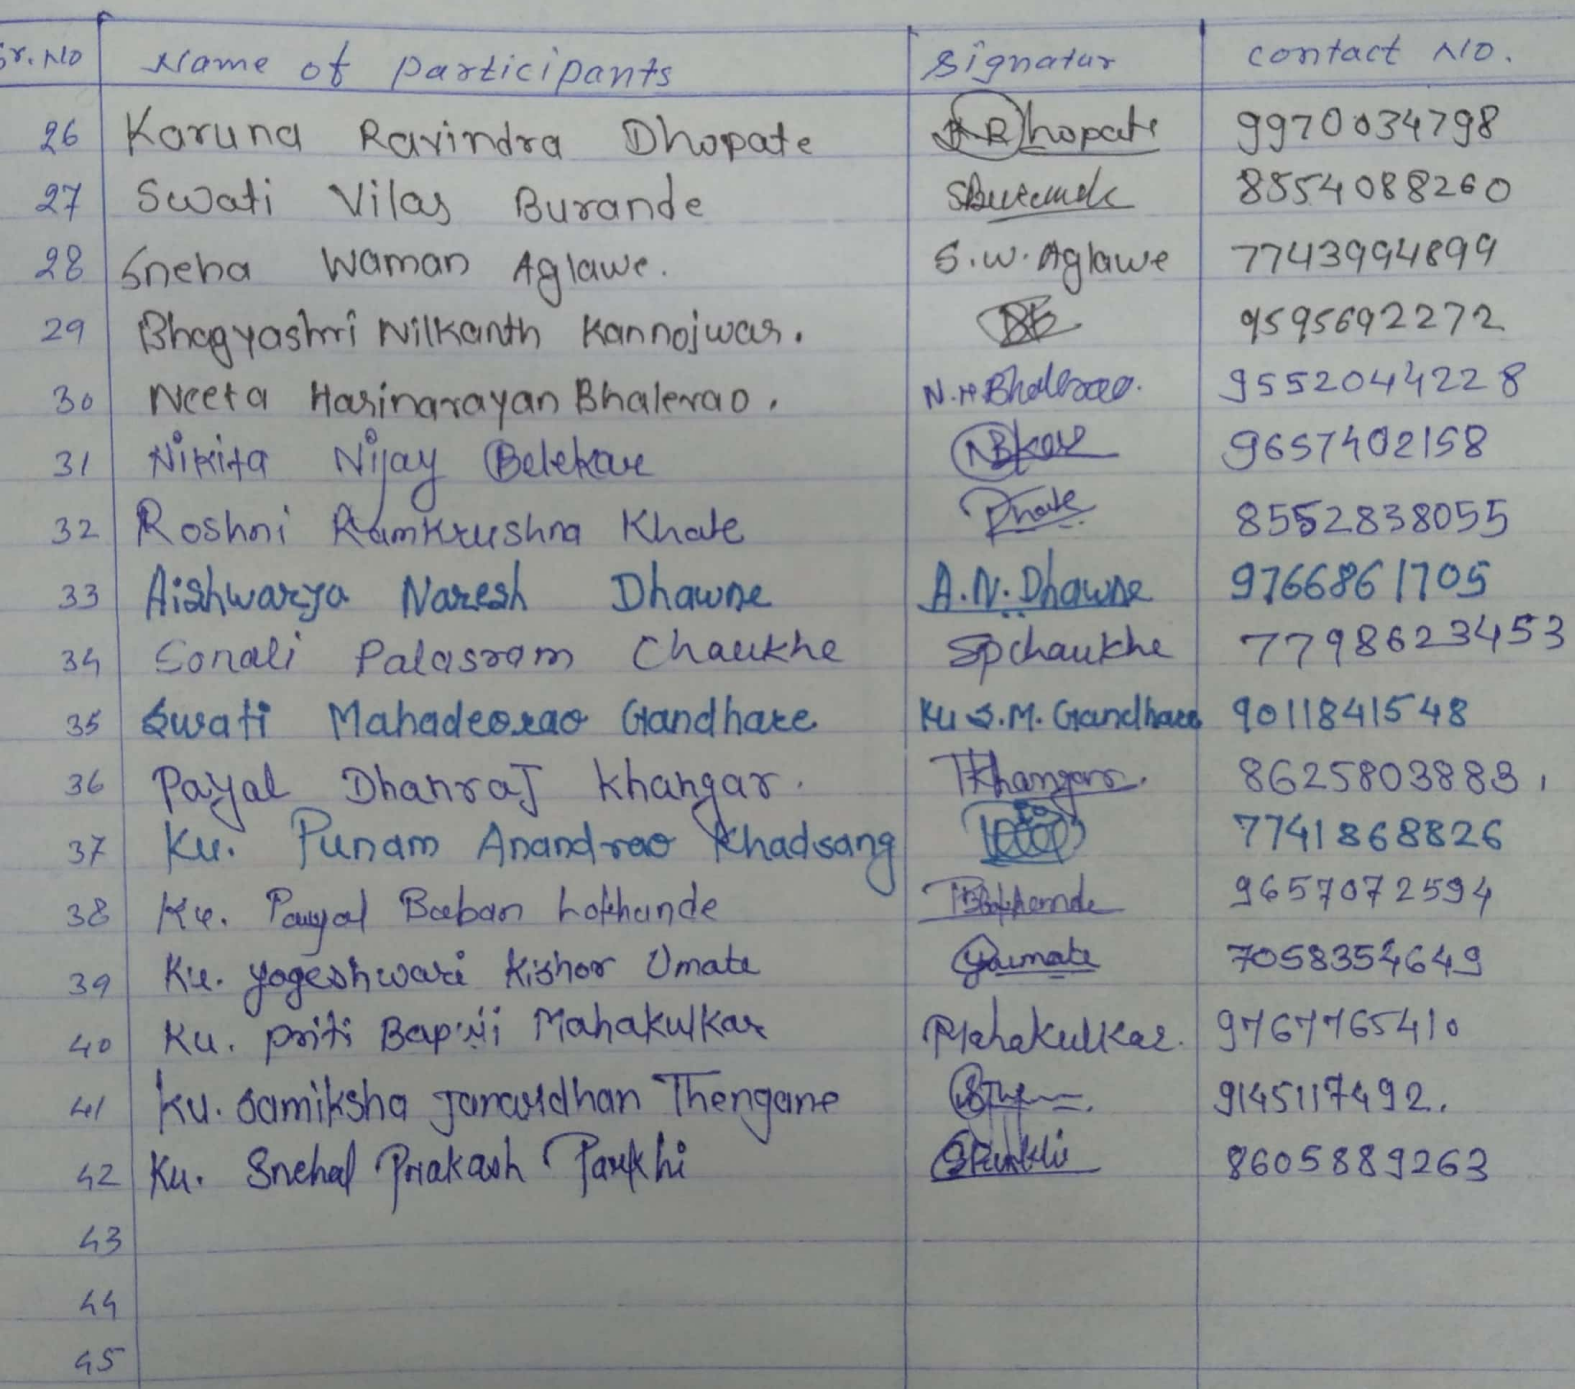 Sr. No Name of participants Signatur contact No.
26 Karuna Ravindra Dhopate Dhopate 9970034798
27 Swati Vilas Burande 8554088260
28 Sneha Waman Aglawe. S.W. Aglawe 7743994899
29 Bhagyashri Nilkanth Kannojwar. 9595692272
30 Neeta Harinarayan Bhalerao. N.H.Bhalerao. 9552044228
31 Nikita Nijay Belekar NBkar 9657402158
32 Roshni Ramkrushna Khate 8552838055
33 Aishwarya Naresh Dhawne A.N. Dhawne 9766861705
34 Sonali Palasram Chaukhe Spchaukhe 7798623453
35 Swati Mahadeorao Gandhare Ku S.M. Gandhare 9011841548
36 Payal Dhanraj Khangar. 8625803883.
37 Ku. Punam Anandrao Khadsang 7741868826
38 Ku. Payal Baban Lokhande 9657072594
39 Ku. Yogeshwari Kishor Umate 7058354649
40 Ku. Priti Mahakulkar PMahakulkar. 9767765410
41 Ku. Samiksha Janardhan Thengane 9145117492.
42 Ku. Snehal Prakash Parkhi 8605889263
43
44
45